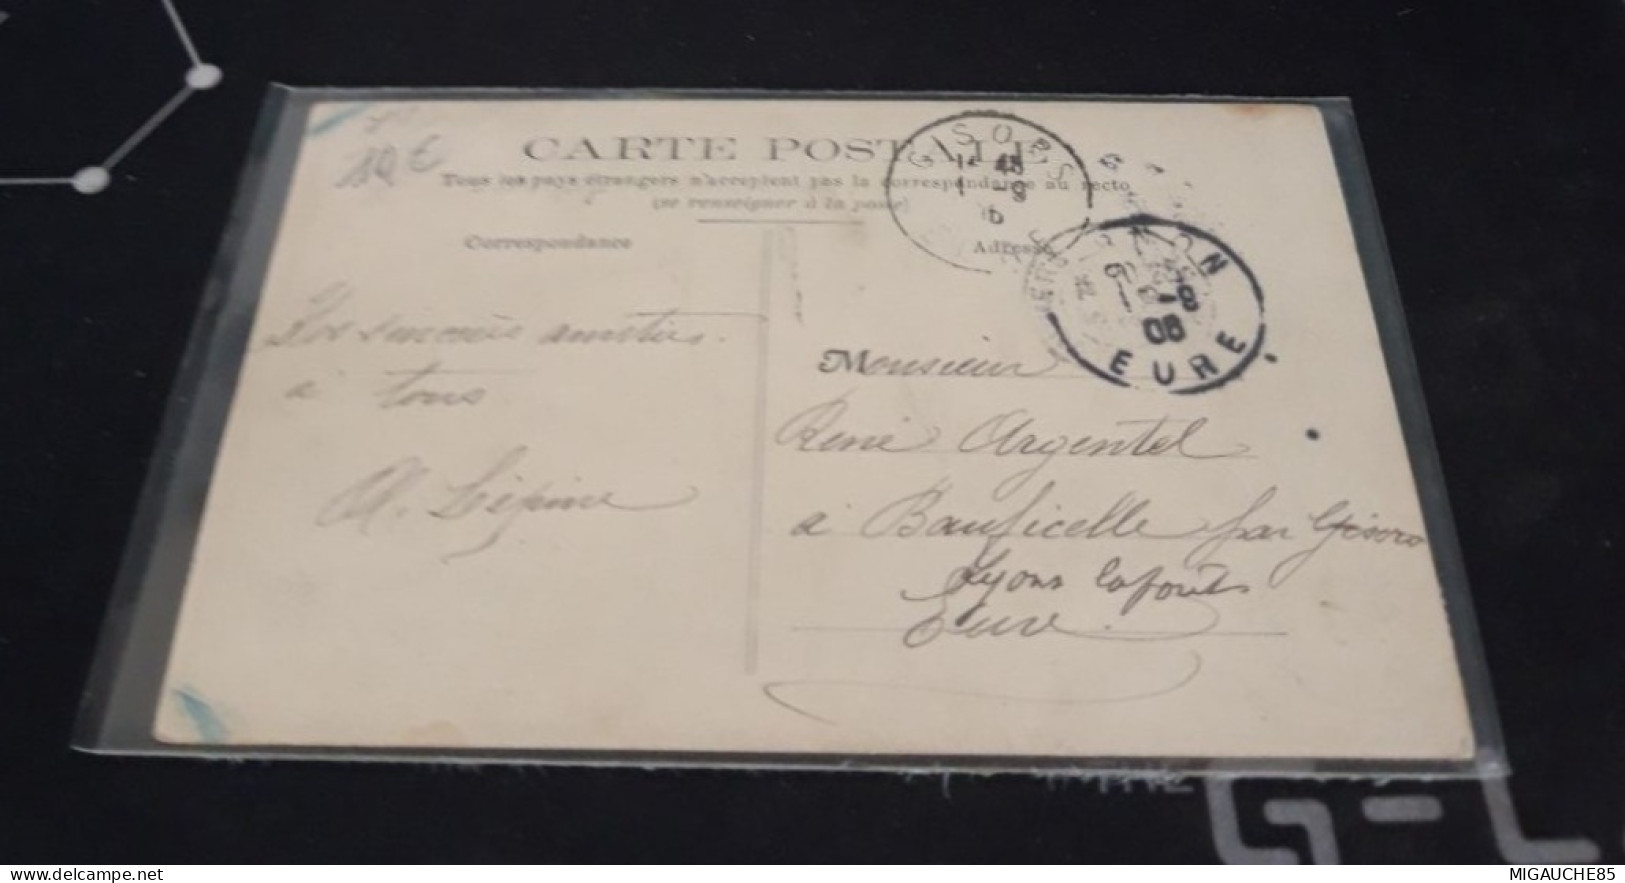 10 €
CARTE POSTALE
Tous les pays étrangers n'acceptent pas la correspondance au recto
(se renseigner à la poste)
Correspondance
Adresse
GISORS
EURE
08
amitiés.
à tous
A. Lépine
Monsieur
René Argentel
à Bauficelle par Gisors
Lyons la forêts
Eure.
MIGAUCHE85